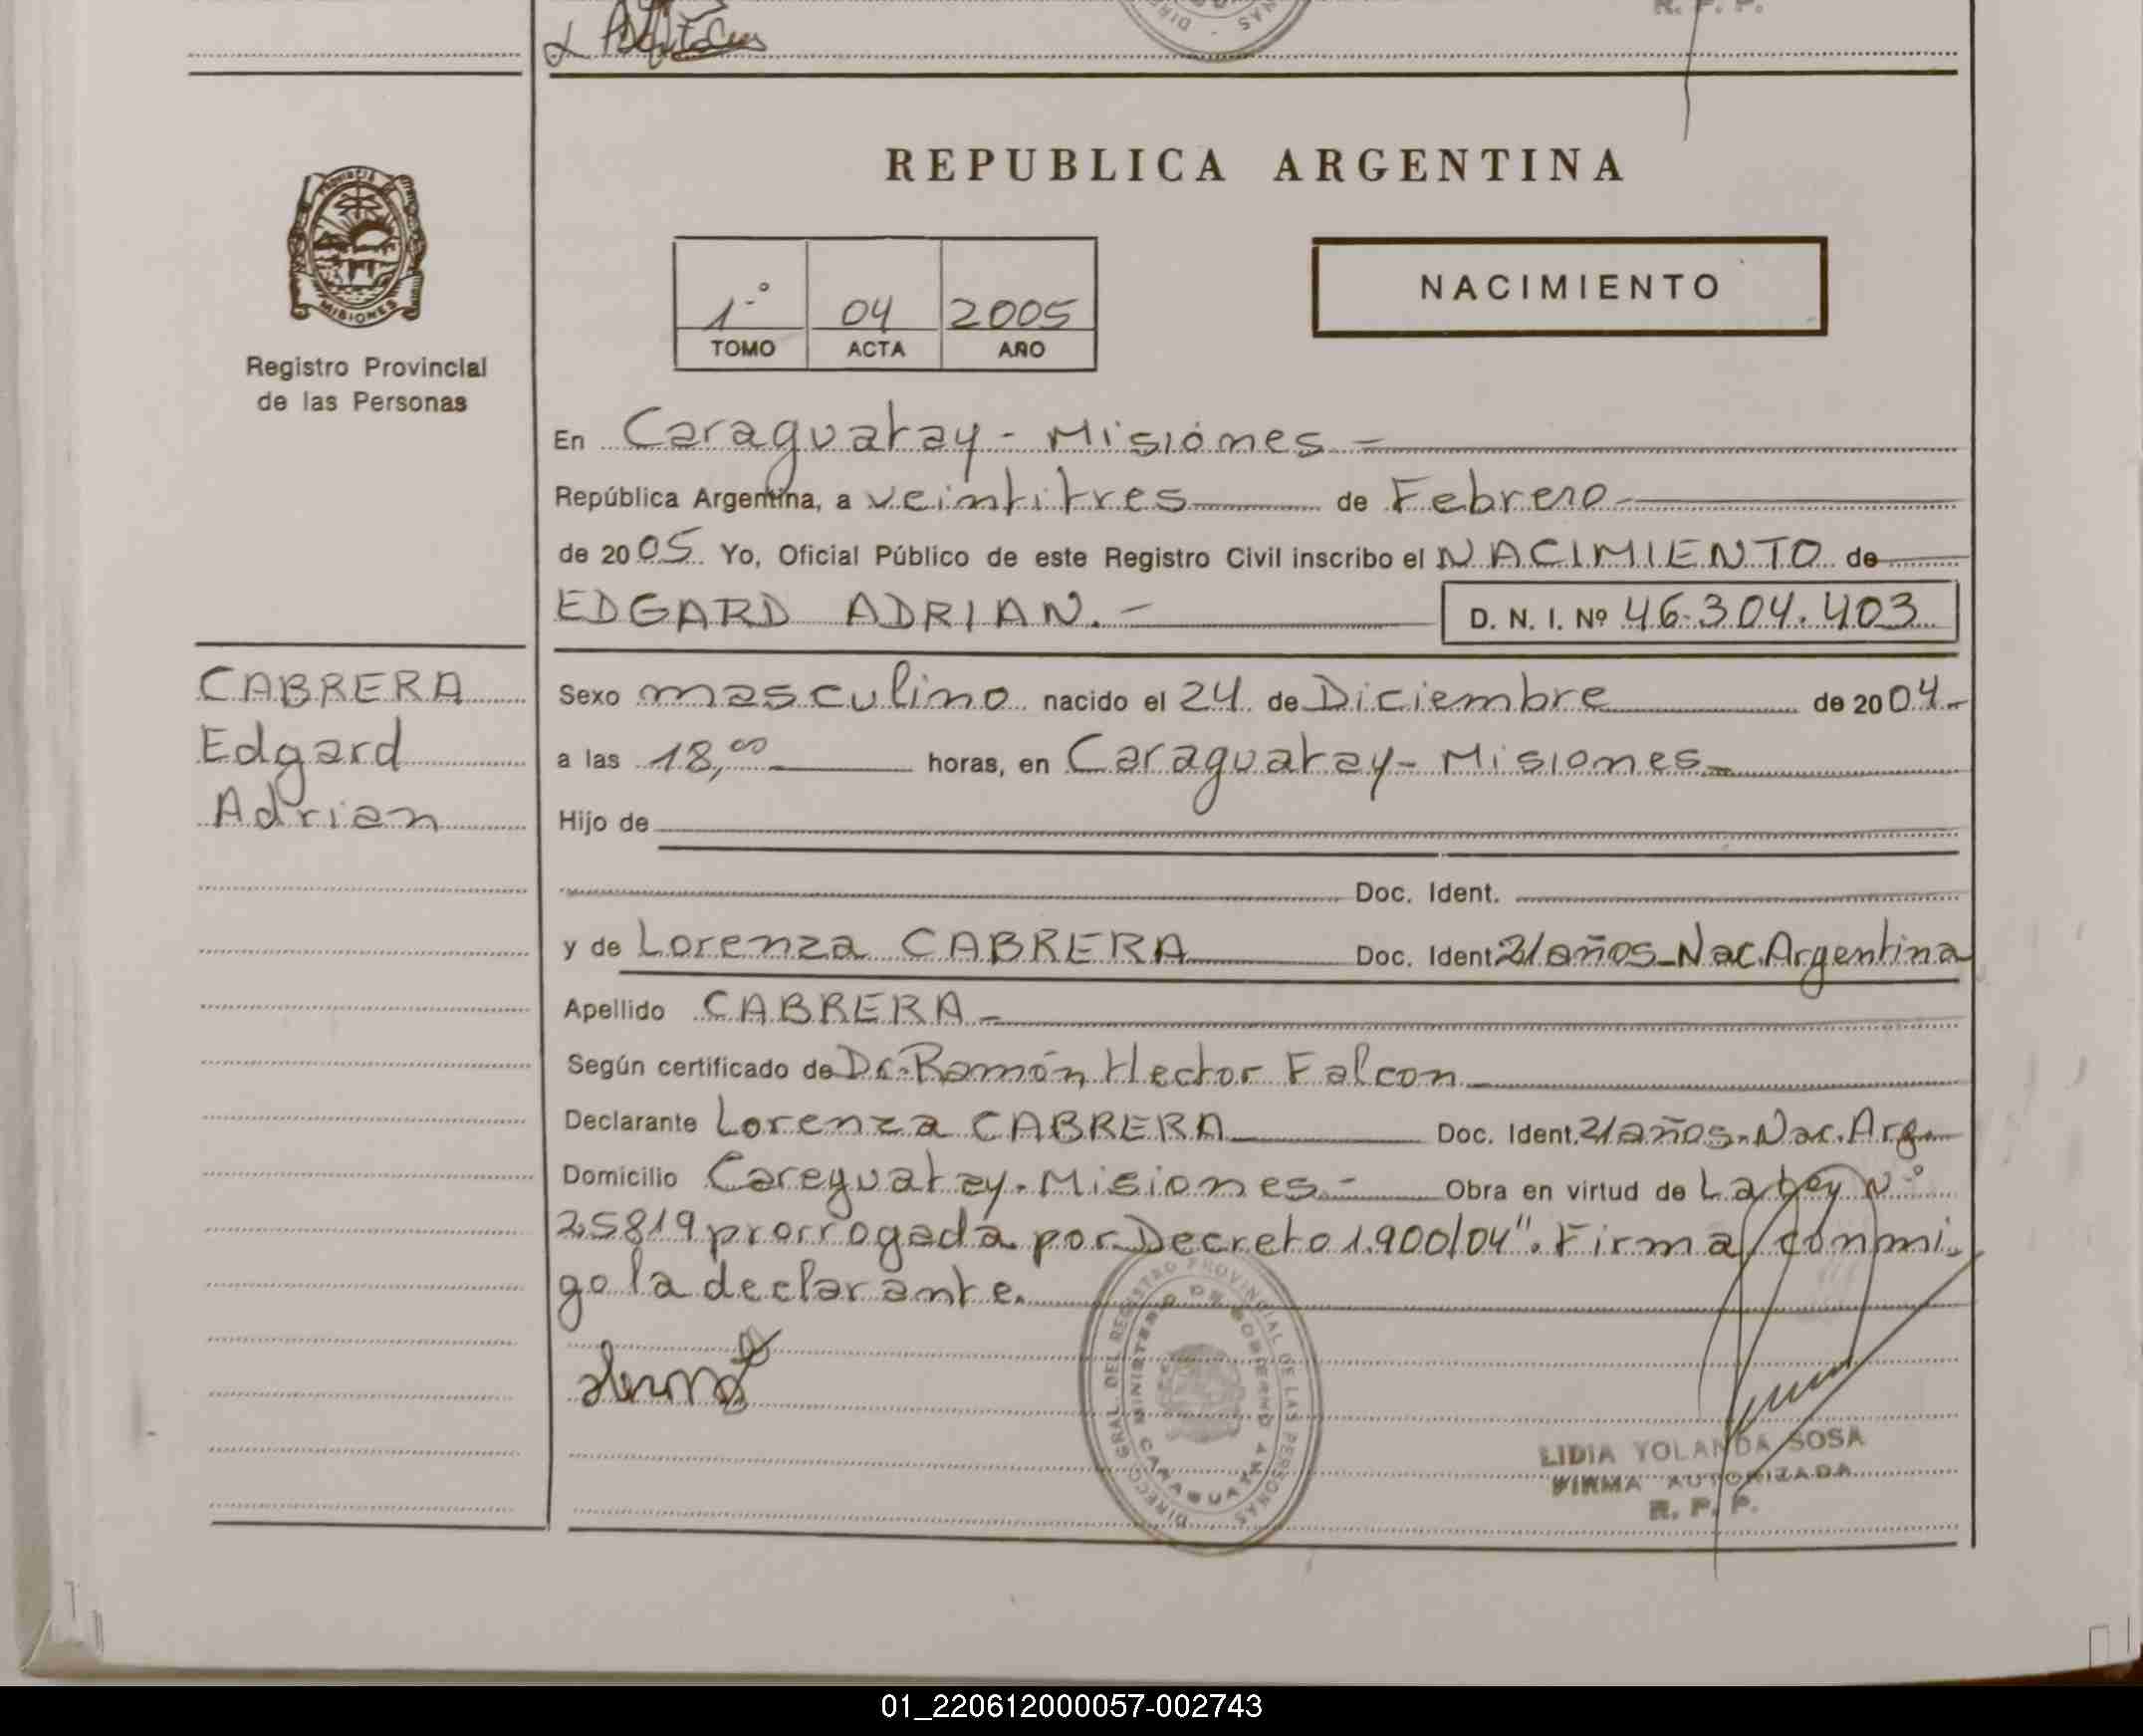 R. P. P.
REPUBLICA ARGENTINA
PROVINCIA
MISIONES
Registro Provincial
de las Personas
1º 04 2005
TOMO ACTA AÑO
NACIMIENTO
En Caraguatay - Misiones -
República Argentina, a veintitres de Febrero
de 2005 Yo, Oficial Público de este Registro Civil inscribo el NACIMIENTO de
EDGARD ADRIAN. - D. N. I. Nº 46.304.403
CABRERA
Edgard
Adrian
Sexo masculino nacido el 24 de Diciembre de 2004-
a las 18,00 horas, en Caraguatay - Misiones -
Hijo de
Doc. Ident.
y de Lorenza CABRERA Doc. Ident. 21 años - Nac. Argentina
Apellido CABRERA -
Según certificado de Dr. Ramón Hector Falcon
Declarante Lorenza CABRERA Doc. Ident. 21 años - Nac. Arg.
Domicilio Careguatay - Misiones - Obra en virtud de La Ley Nº
25819 prorrogada por Decreto 1.900/04". Firma conmi-
go la declarante.
DIRECC. GRAL. DEL REGISTRO PROVINCIAL DE LAS PERSONAS
MINISTERIO DE GOBIERNO
CARAGUATAY
LIDIA YOLANDA SOSA
FIRMA AUTORIZADA
R. P. P.
01_220612000057-002743